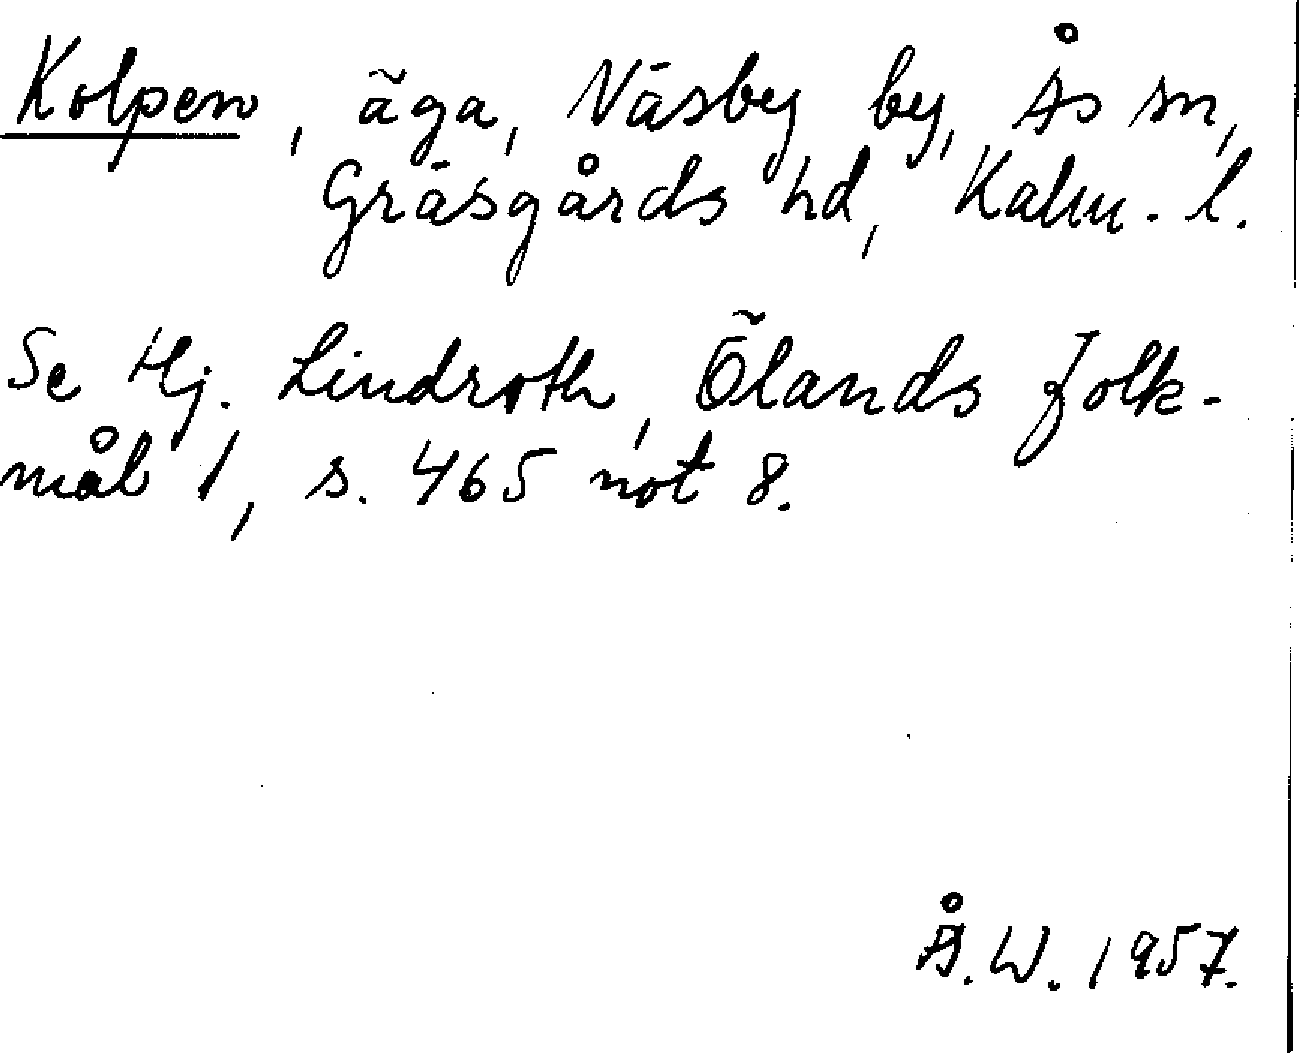 Kolpen, äga, Näsby by, Ås sn,
Gräsgårds hd, Kalm. l.
Se Hj. Lindroth, Ölands folk-
mål 1, s. 465 not 8.
Å.W. 1957.